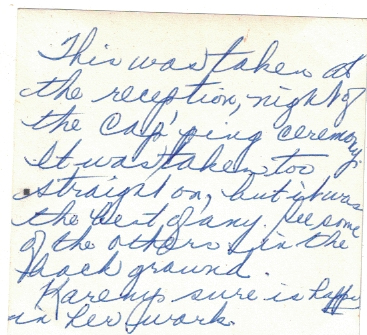 This was taken at
the reception, night of
the cap'ping ceremony.
It was taken too
straight on, but it was
the best of any. See some
of the others in the
back ground.
Karemp sure is happy
in her work.